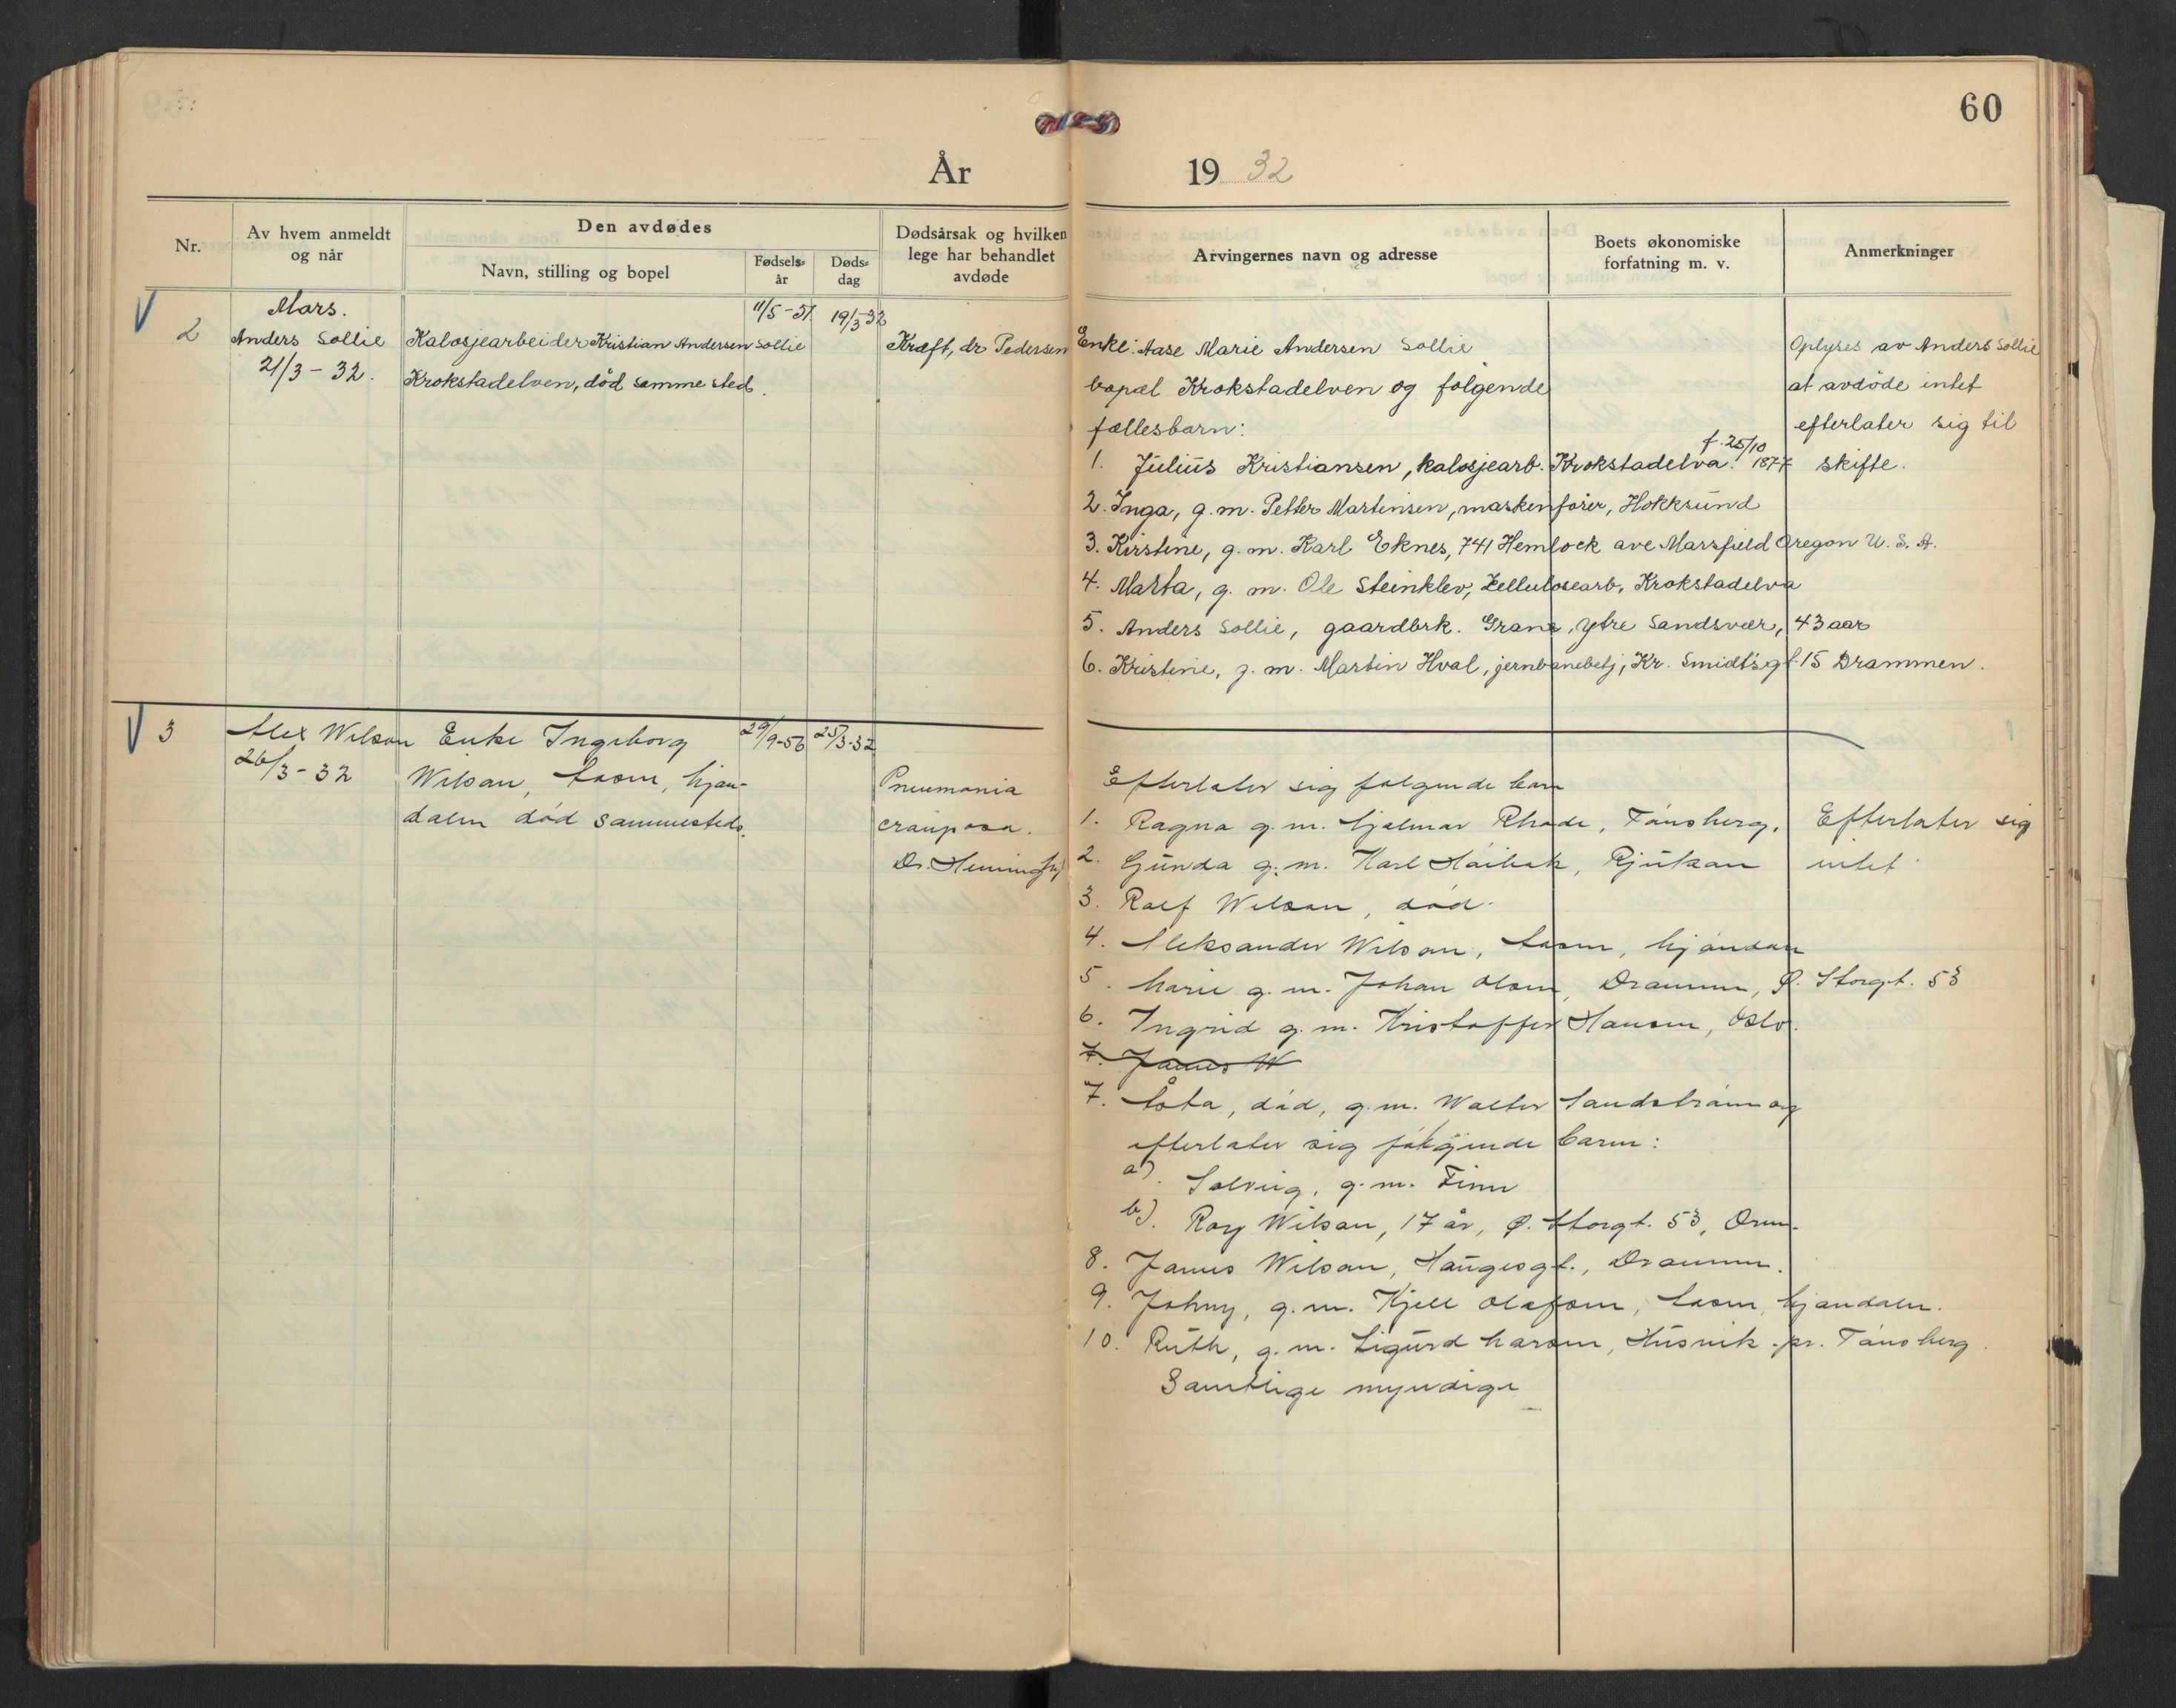 60
År 19 32
Nr.
Av hvem anmeldt
og når
Den avdødes
Navn, stilling og bopel
Fødsels-
år
Døds-
dag
Dødsårsak og hvilken
lege har behandlet
avdøde
Arvingernes navn og adresse
Boets økonomiske
forfatning m. v.
Anmerkninger
2
Mars.
Anders Sollie
21/3 - 32.
Kalosjearbeider Kristian Andersen Sollie
Krokstadelven, död samme sted.
11/5 - 51
19/3-32
Kræft, dr Pedersen
Enke: Aase Marie Andersen Sollie
bopæl Krokstadelven og følgende
fællesbarn:
1. Julius Kristiansen, kalosjearb. Krokstadelva. f. 25/10 1877
2. Inga, g. m. Petter Martinsen, maskenförer, Hokksund
3. Kirstine, g. m. Karl Eknes, 741 Hemlock ave Marsfield Oregon U. S. A.
4. Marta, g. m. Ole Steinklev, Zellulosearb, Krokstadelva
5. Anders Sollie, gaardbrk. Grane, ytre Sandsvær, 43 aar
6. Kristine, g. m. Martin Hval, jernbanebetj, Kr. Smidt's gt 15 Drammen.
Oplyses av Anders Sollie
at avdöde intet
efterlater sig til
skifte.
3
Alex Wilson
26/3 - 32
Enke Ingeborg
Wilson, Åsen, Mjøn-
dalen död sammesteds.
29/9-56
25/3-32
Pneumonia
crouposa.
Efterlater sig følgende barn
1. Ragna g. m. Hjalmar Rhode, Tönsberg.
2. Gunda g. m. Karl Rjukan
3. Rolf Wilson, död.
4. Aleksander Wilson, Åsen, Mjöndalen
5. Marie g. m. Johan Olsen, Drammen, Ø. Storgt. 53
6. Ingrid g. m. Kristoffer Hansen, Oslo.
7. James W
7. Åsta, död, g. m. Walter Sandström og
efterlater sig følgende barn:
a). Solveig, g. m. Finn
b). Roy Wilson, 17 år, Ø. Storgt. 53, Drm.
8. James Wilson, Haugesgt., Drammen.
9. Johny, g. m. Kjell Olafsen, Åsen, Mjøndalen.
10. Ruth, g. m. Sigurd Larsen, Husvik pr. Tönsberg.
Samtlige myndige
Efterlater sig
intet